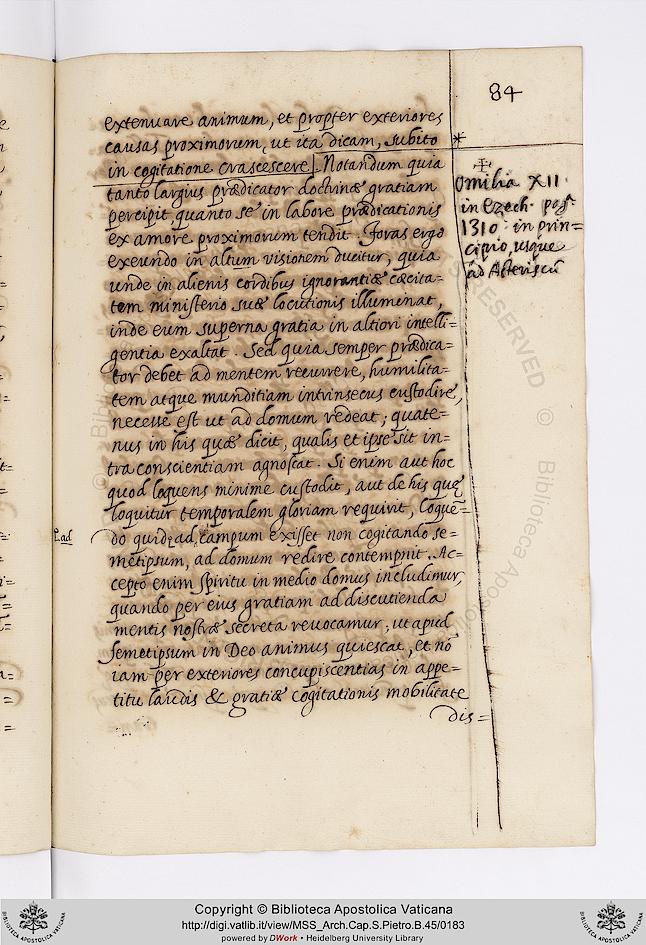 84
extenuare animum, et propter exteriores
causas proximorum, ut ita dicam, subito *
in cogitatione crascescere. Notandum quia
tanto largius prædicator doctrinæ gratiam
percipit, quanto se in labore prædicationis
ex amore proximorum tendit. Foras ergo
exeundo in altum visionem ducitur, quia
unde in alienis cordibus ignorantiæ cæcita=
tem ministerio suæ locutionis illuminat,
inde eum superna gratia in altiori intelli=
gentia exaltat. Sed quia semper prædica=
tor debet ad mentem recurrere, humilita=
tem atque munditiam intrinsecus custodire,
necesse est ut ad domum redeat; quate=
nus in his quæ dicit, qualis et ipse sit in=
tra conscientiam agnoscat. Si enim aut hoc
quod loquens minime custodit, aut de his quę
loquitur temporalem gloriam requirit, loquē=
do quidẽ ad, campum exisset non cogitando se=
metipsum, ad domum redire contempnit. Ac=
cepto enim spiritu in medio domus includimur,
quando per eius gratiam ad discutienda
mentis nostræ secreta revocamur, ut apud
semetipsum in Deo animus quiescat, et nõ
iam per exteriores concupiscentias in appe=
titu laudis & gratiæ cogitationis mobilitate
dis=
Omilia XII.
in Ezech. pag.
1310. in prin=
cipio, usque
ad Asteriscũ
Lad
Copyright © Biblioteca Apostolica Vaticana
http://digi.vatlib.it/view/MSS_Arch.Cap.S.Pietro.B.45/0183
powered by DWork • Heidelberg University Library